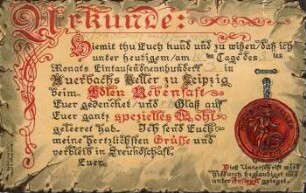 Urkunde:
Hiemit thu Euch kund und zu wißen daß ich
unter heutigem/am Tage des
Monats Eintausendneunhundert
in Auerbachs Keller zu Leipzig
beim Edlen Rebensaft
Euer gedenket und Glaß auf
Euer gantz spezielles Wohl
geleeret hab. Ich send Euch
meine hertzlichsten Grüße und
verbleib in Freundschaft
Euer
Dieß Unterschrift wird
hiedurch beglaubiget mit
unter Insigel gelegt.